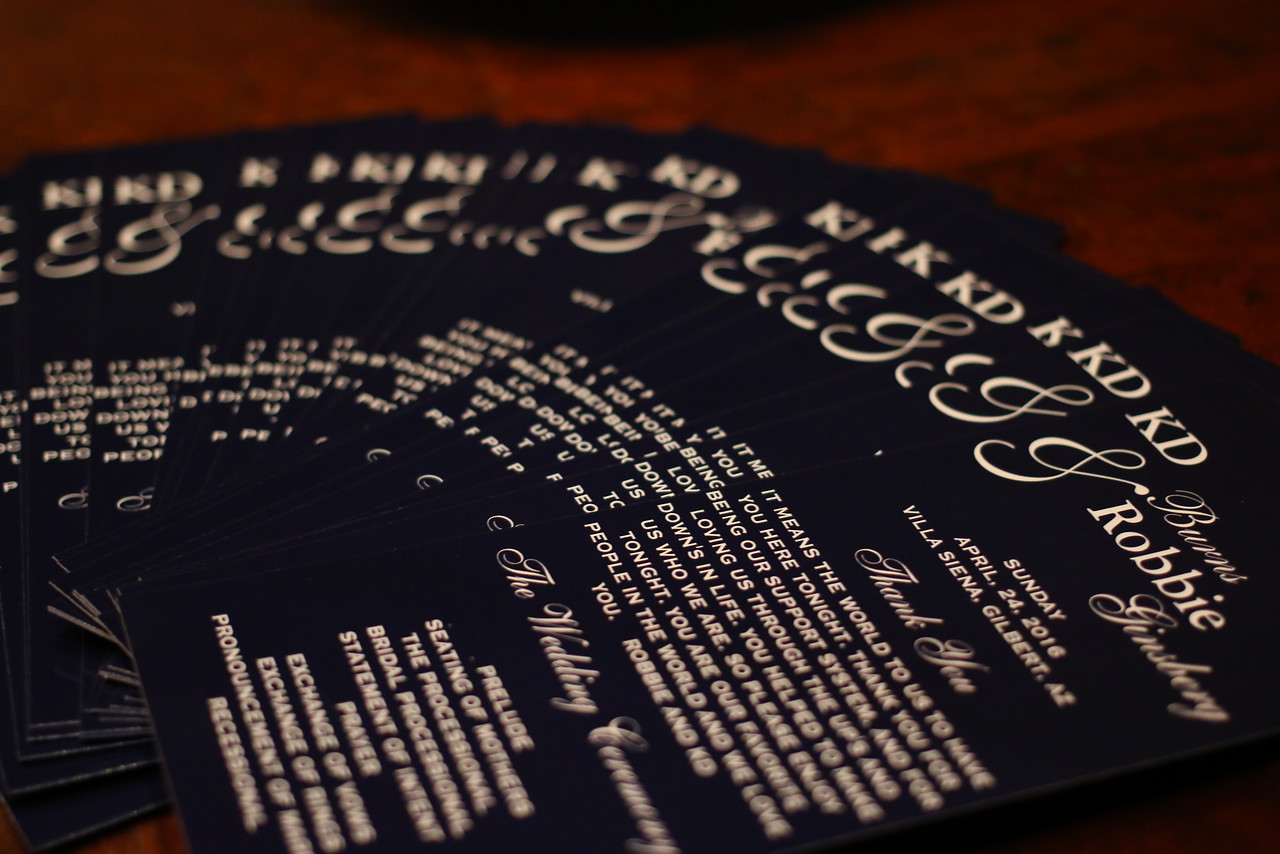 KD Burns
&
Robbie Ginsberg
SUNDAY
APRIL, 24, 2016
VILLA SIENA, GILBERT, AZ
Thank You
IT MEANS THE WORLD TO US TO HAVE
YOU HERE TONIGHT. THANK YOU FOR
BEING OUR SUPPORT SYSTEM, AND FOR
LOVING US THROUGH THE UP'S AND
DOWN'S IN LIFE. YOU HELPED TO MAKE
US WHO WE ARE. SO PLEASE ENJOY
TONIGHT. YOU ARE OUR FAVORITE
PEOPLE IN THE WORLD AND WE LOVE
YOU. ROBBIE AND KD
The Wedding Ceremony
PRELUDE
SEATING OF MOTHERS
THE PROCESSIONAL
BRIDAL PROCESSIONAL
STATEMENT OF INTENT
PRAIER
EXCHANGE OF VOWS
EXCHANGE OF RINGS
PRONOUNCEMENT OF
RECESSIONAL